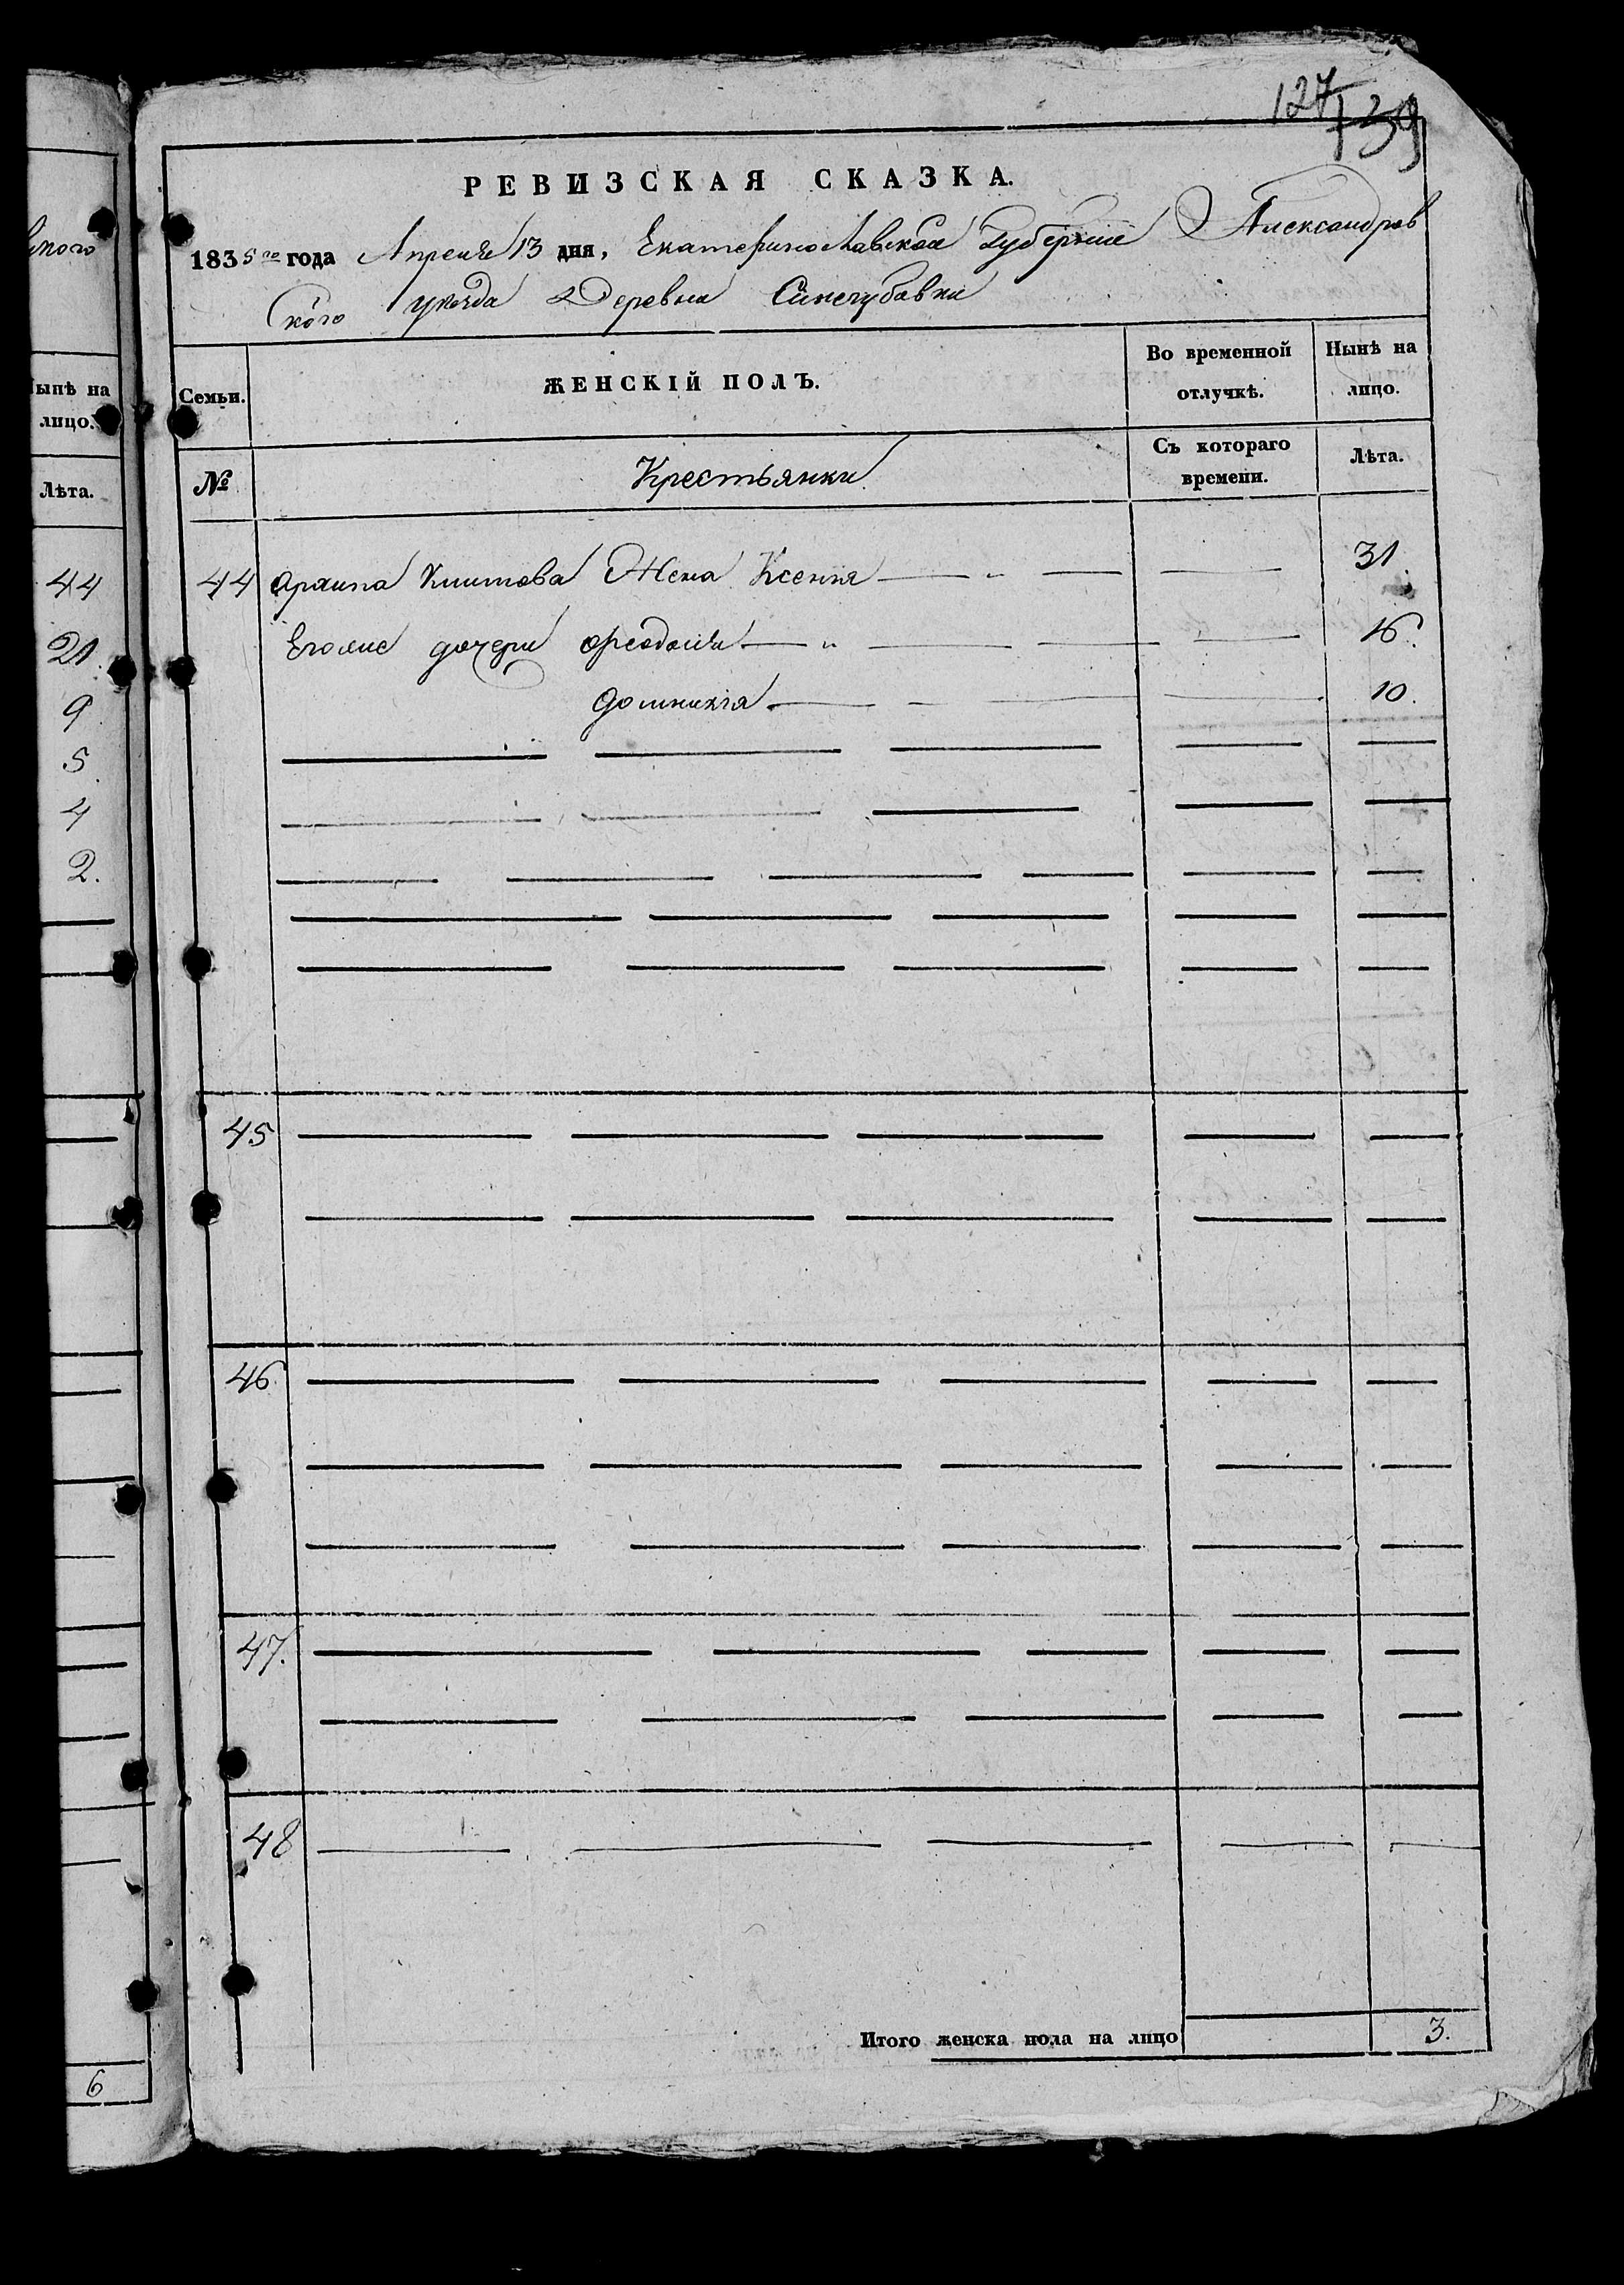 127
139
РЕВИЗСКАЯ СКАЗКА.
1835го года Апреля 13 дня, Екатеринославской Губернии Александров
ского уезда Деревни Синегубовки
Семьи.
ЖЕНСКІЙ ПОЛЪ.
Во временной отлучкѣ.
Нынѣ на лицо.
№
Крестьянки
Съ котораго времени.
Лѣта.
44 Архипа Жена Ксения 31.
Его дочери Феодосия 16.
Домникия 10.
45
46.
47.
48
Итого женска пола на лицо 3.
ынѣ на
лицо.
Лѣта.
44
21.
9.
5.
4
2.
6